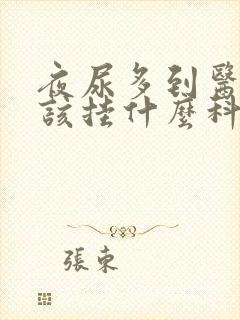 夜尿多到醫
該掛什麼科
張東